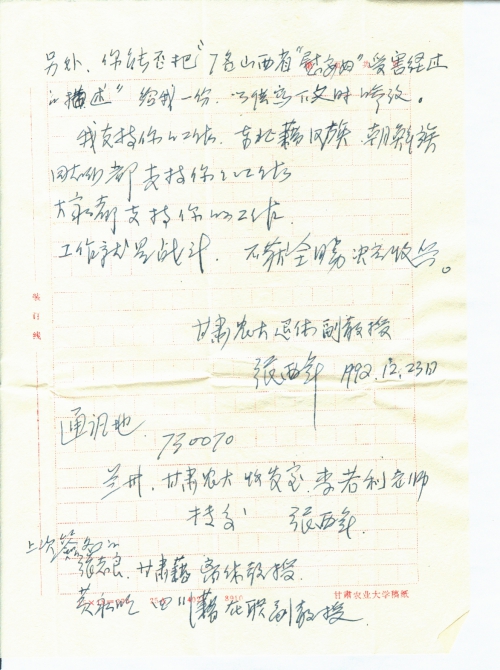 另外、你能否把“7名山西省“慰安妇”受害经过
的描述”给我一份.以供写下文时修改。
我支持你的工作.东北籍汉族、朝鲜族
同志们都支持你的工作
大家都支持你的工作.
工作就是战斗.不获全胜决不收兵。
甘肃农大退休副教授
张西年 1992.12.23日
装订线
通讯地.730070
兰州.甘肃农大收发室.李若利老师
转交 张西年.
上次签名的
张志良.甘肃籍离休教授.
四川籍在职副教授.
甘肃农业大学稿纸